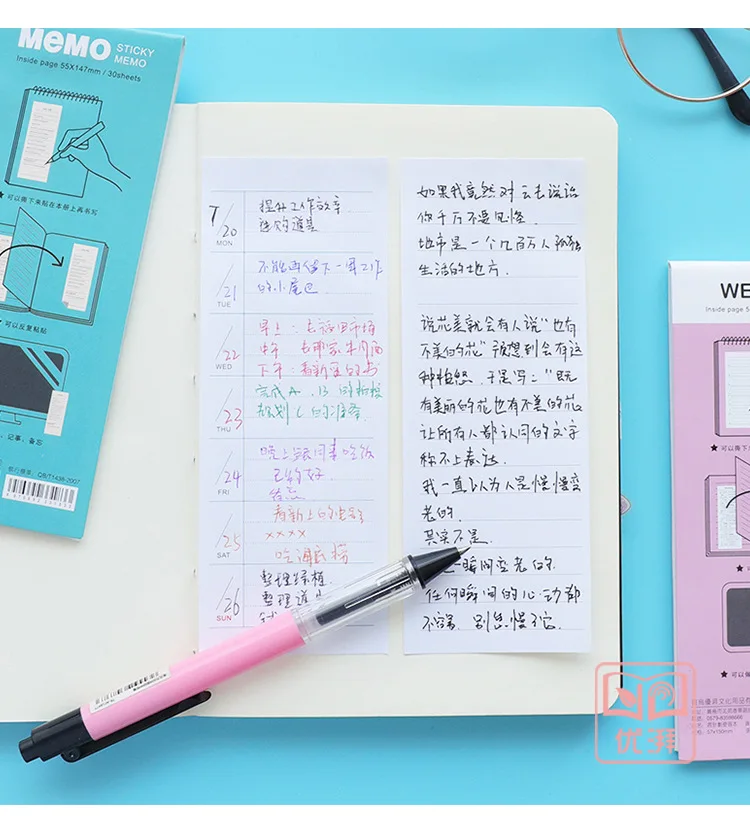 MeMO STICKY MEMO
Inside page 55X147mm / 30sheets
★ 可以撕下来贴在本册上再书写
可以反复粘贴
记事、备忘
执行标准: QB/T1438-2007
7/20 MON
提升工作效率
选购道具
/21 TUE
不能再留下一周工作
的小尾巴
/22 WED
早上:去花田市场
中午
下午:看新买的书
/23 THU
完成A、B的拍摄
规划C的准备
/24 FRI
晚上跟同事吃饭
/25 SAT
看新上的电影
××××
吃海底捞
/26 SUN
整理绿植
整理道
如果我竟然对云去说话
你千万不要见怪.
城市是一个几百万人孤独
生活的地方.
说花美就会有人说"也有
不美的花" 被想到会有这
种抱怨.于是写:"既
有美丽的花也有不美的花
让所有人都认同的文字
称不上表达.
我一直以为人是慢慢变
老的.
其实不是.
一瞬间变老的.
任何瞬间的心动都
不容易.别怠慢了它.
WE
Inside page 5
★ 可以撕下
★ 可以
★ 可以
0579-83996666
57x150mm
优拜